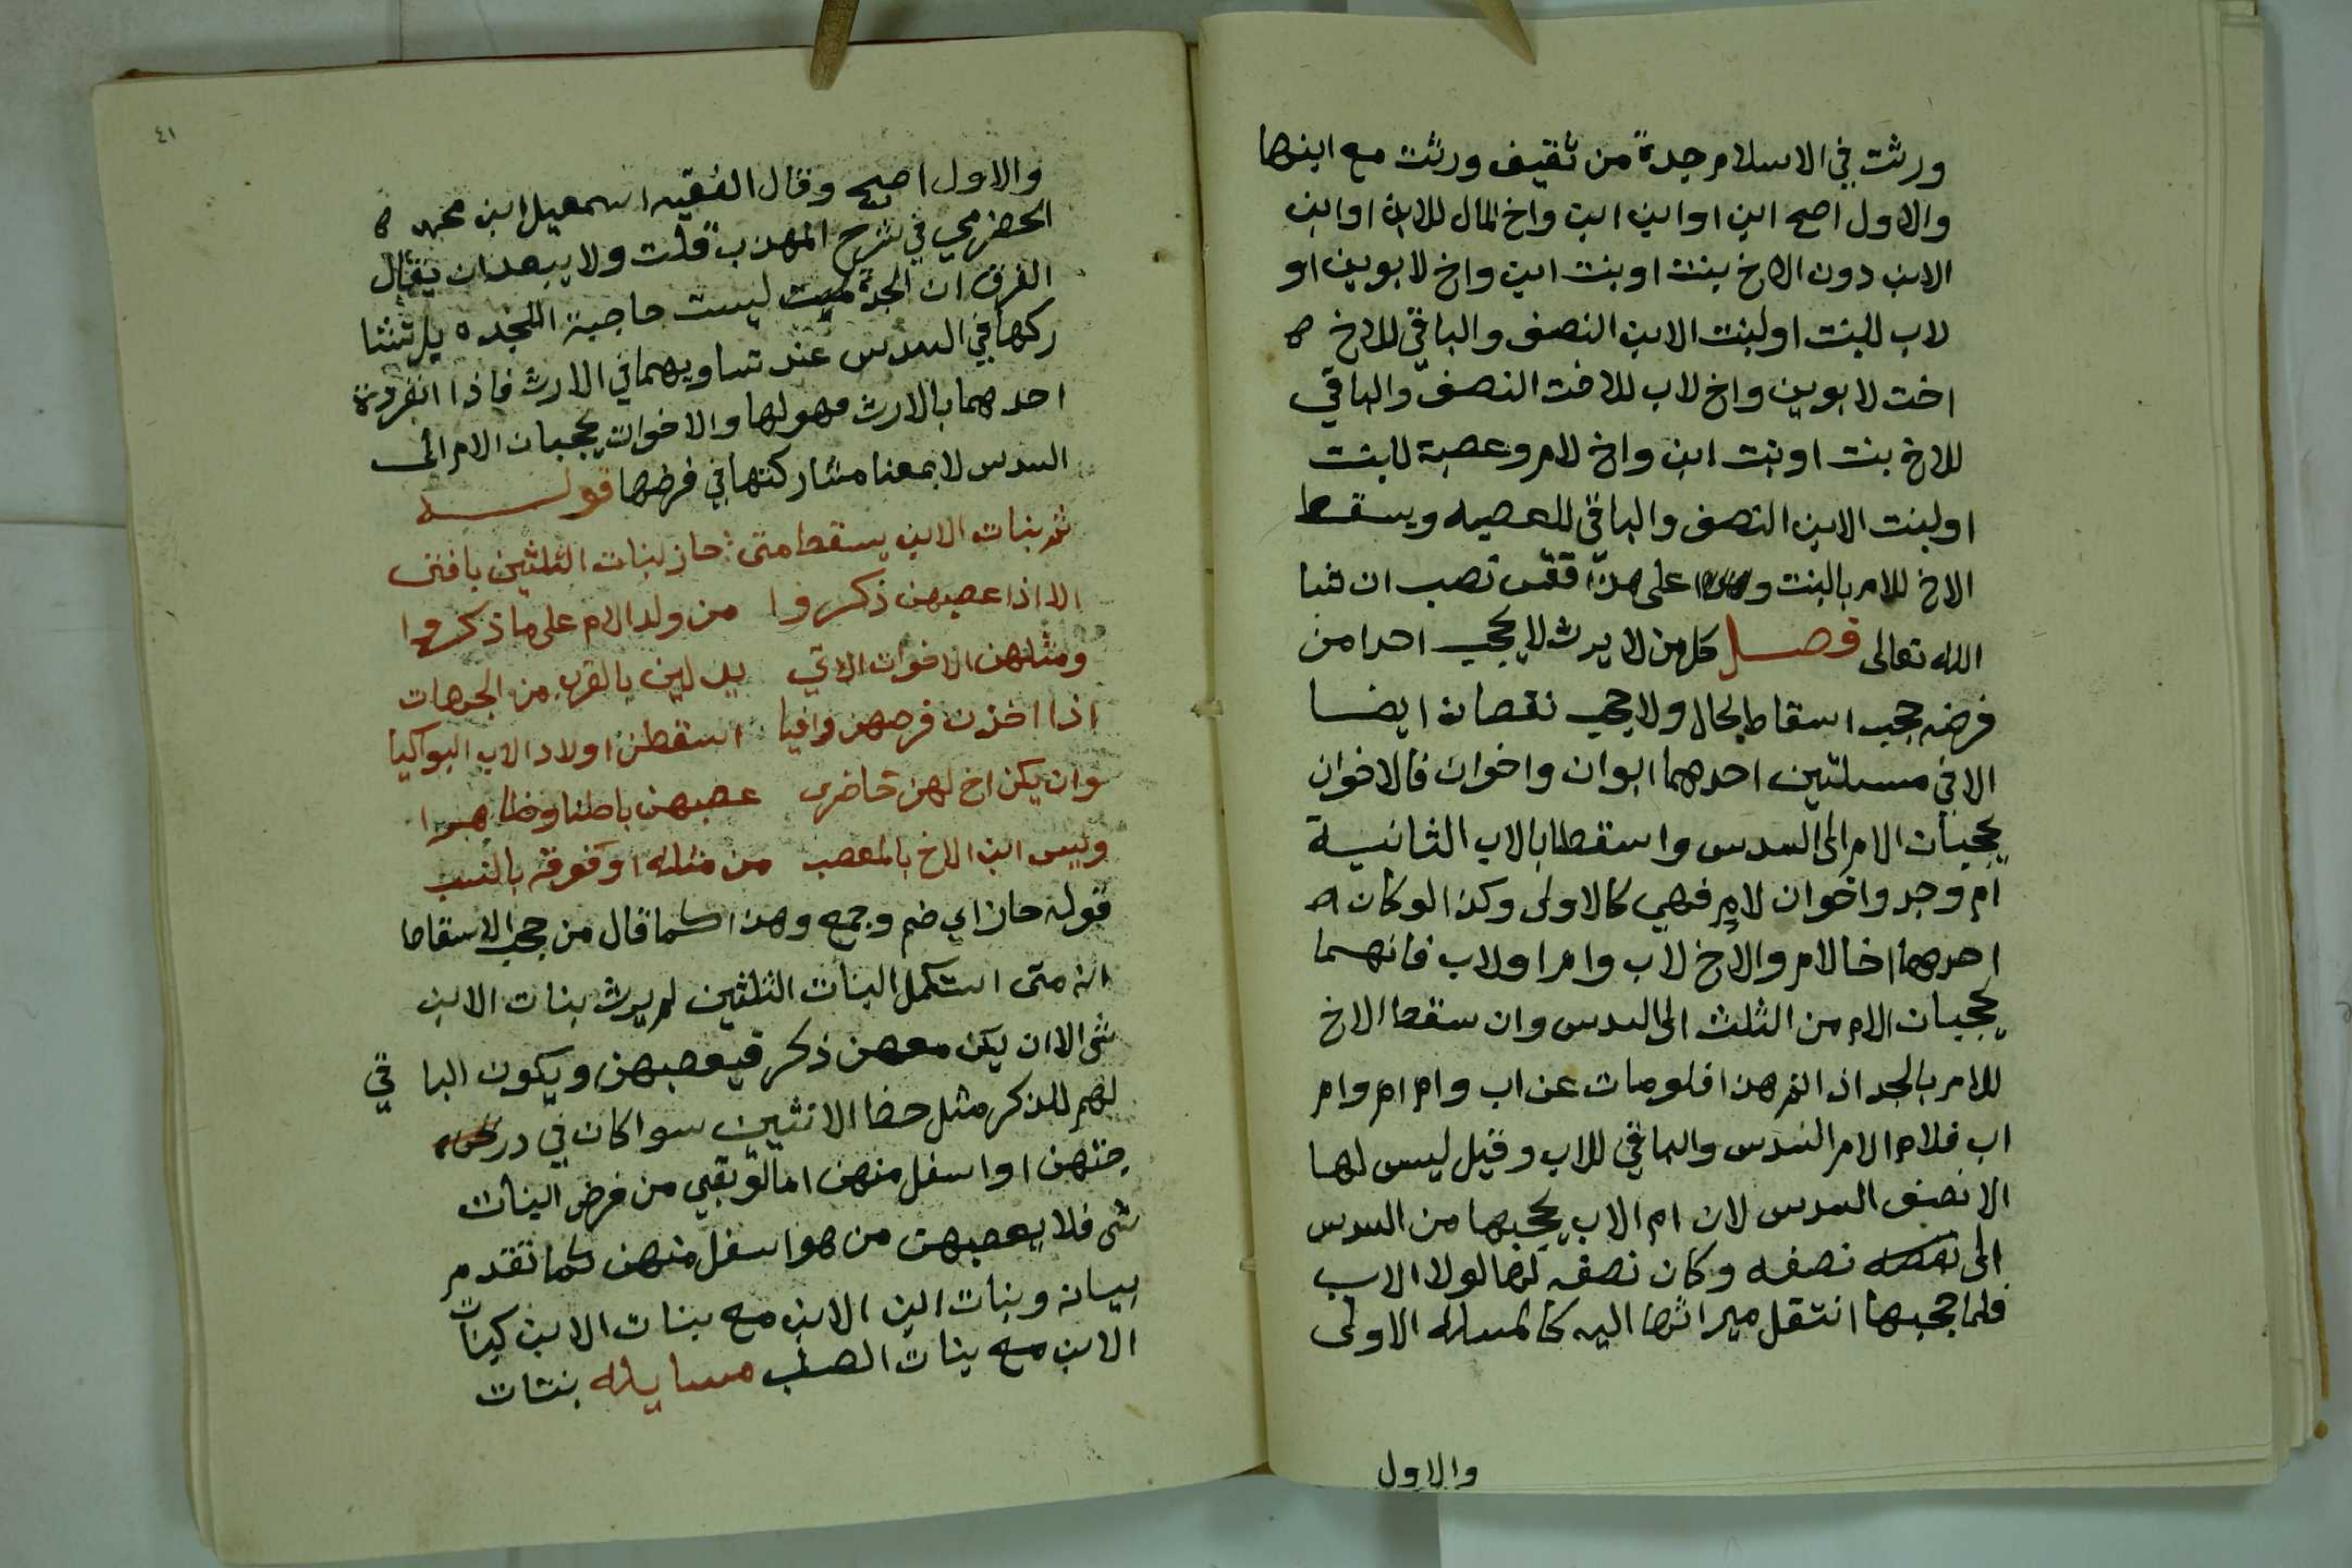 ورثت في الاسلام جدة من ثقيف ورثت مع ابنها
والاول اصح ابن او ابن ابن واخ المال للابن او ابن
الابن دون الاخ بنت او بنت ابن واخ لابوين او
لاب للبنت او لبنت الابن النصف والباقي للاخ ه
اخت لابوين واخ لاب للاخت النصف والباقي
للاخ بنت او بنت ابن واخ لام وعصبة للبنت
او لبنت الابن النصف والباقي للعصبه ويسقط
الاخ للام بالبنت وعلى هذا فقس تصب ان شا
الله تعالى فصل كل من لا يرث لا يحجب احدا من
فرضه حجب اسقاط بحال ولا حجب نقصان ايضا
الا في مسئلتين احدهما ابوان واخوان فالاخوان
يحجبان الام الى السدس واسقطا بالاب الثانية
ام وجد واخوان لام فهي كالاولى وكذا لو كان ه
احدهما اخا لام والاخ لاب وام او لاب فانهما
يحجبان الام من الثلث الى السدس وان سقط الاخ
للام بالجد اذا تقرر هذا فلو مات عن اب وام ام وام
اب فلام الام السدس والباقي للاب وقيل ليس لها
الا نصف السدس لان ام الاب يحجبها من السدس
الى نصفه وكان نصفه لها لولا الاب
فلما حجبها انتقل ميراثها اليه كالمسله الاولى
والاول
٤١
والاول اصح وقال الفقيه اسمعيل ابن محمد ه
الحضرمي في شرح المهذب قلت ولا يبعد ان يقال
الفرق ان الجدة ليست حاجبة للجده بل تشا
ركها في السدس عند تساويهما في الارث فاذا انفردة
احدهما بالارث فهو لها والاخوات يحجبان الام الى
السدس لا بمعنا مشاركتها في فرضها قوله
ثم بنات الابن يسقط متى حاز بنات الثلثين يا فتى
الا اذا عصبهن ذكروا من ولد الام على ما ذكروا
ومثلهن الاخوات الاتي يدلين بالقرب من الجهات
اذا اخذن فرضهن وافيا اسقطن اولاد الاب البواكيا
وان يكن اخ لهن حاضرى عصبهن باطنا وظاهرا
وليس ابن الاخ بالمعصب من مثله او فوقه بالنسب
قوله حاز اي ضم وجمع وهذا كما قال من حجب الاسقاط
انه متى استكمل البنات الثلثين لم يرث بنات الابن
شى الا ان يكن معهن ذكر فيعصبهن ويكون الباقي
لهم للذكر مثل حظ الانثيين سوا كان في در
جتهن او اسفل منهن اما لو بقي من فرض البنات
شى فلا يعصبهن من هو اسفل منهن كما تقدم
بيانه وبنات ابن الابن مع بنات الابن كبنات
الابن مع بنات الصلب مسايله بنتات